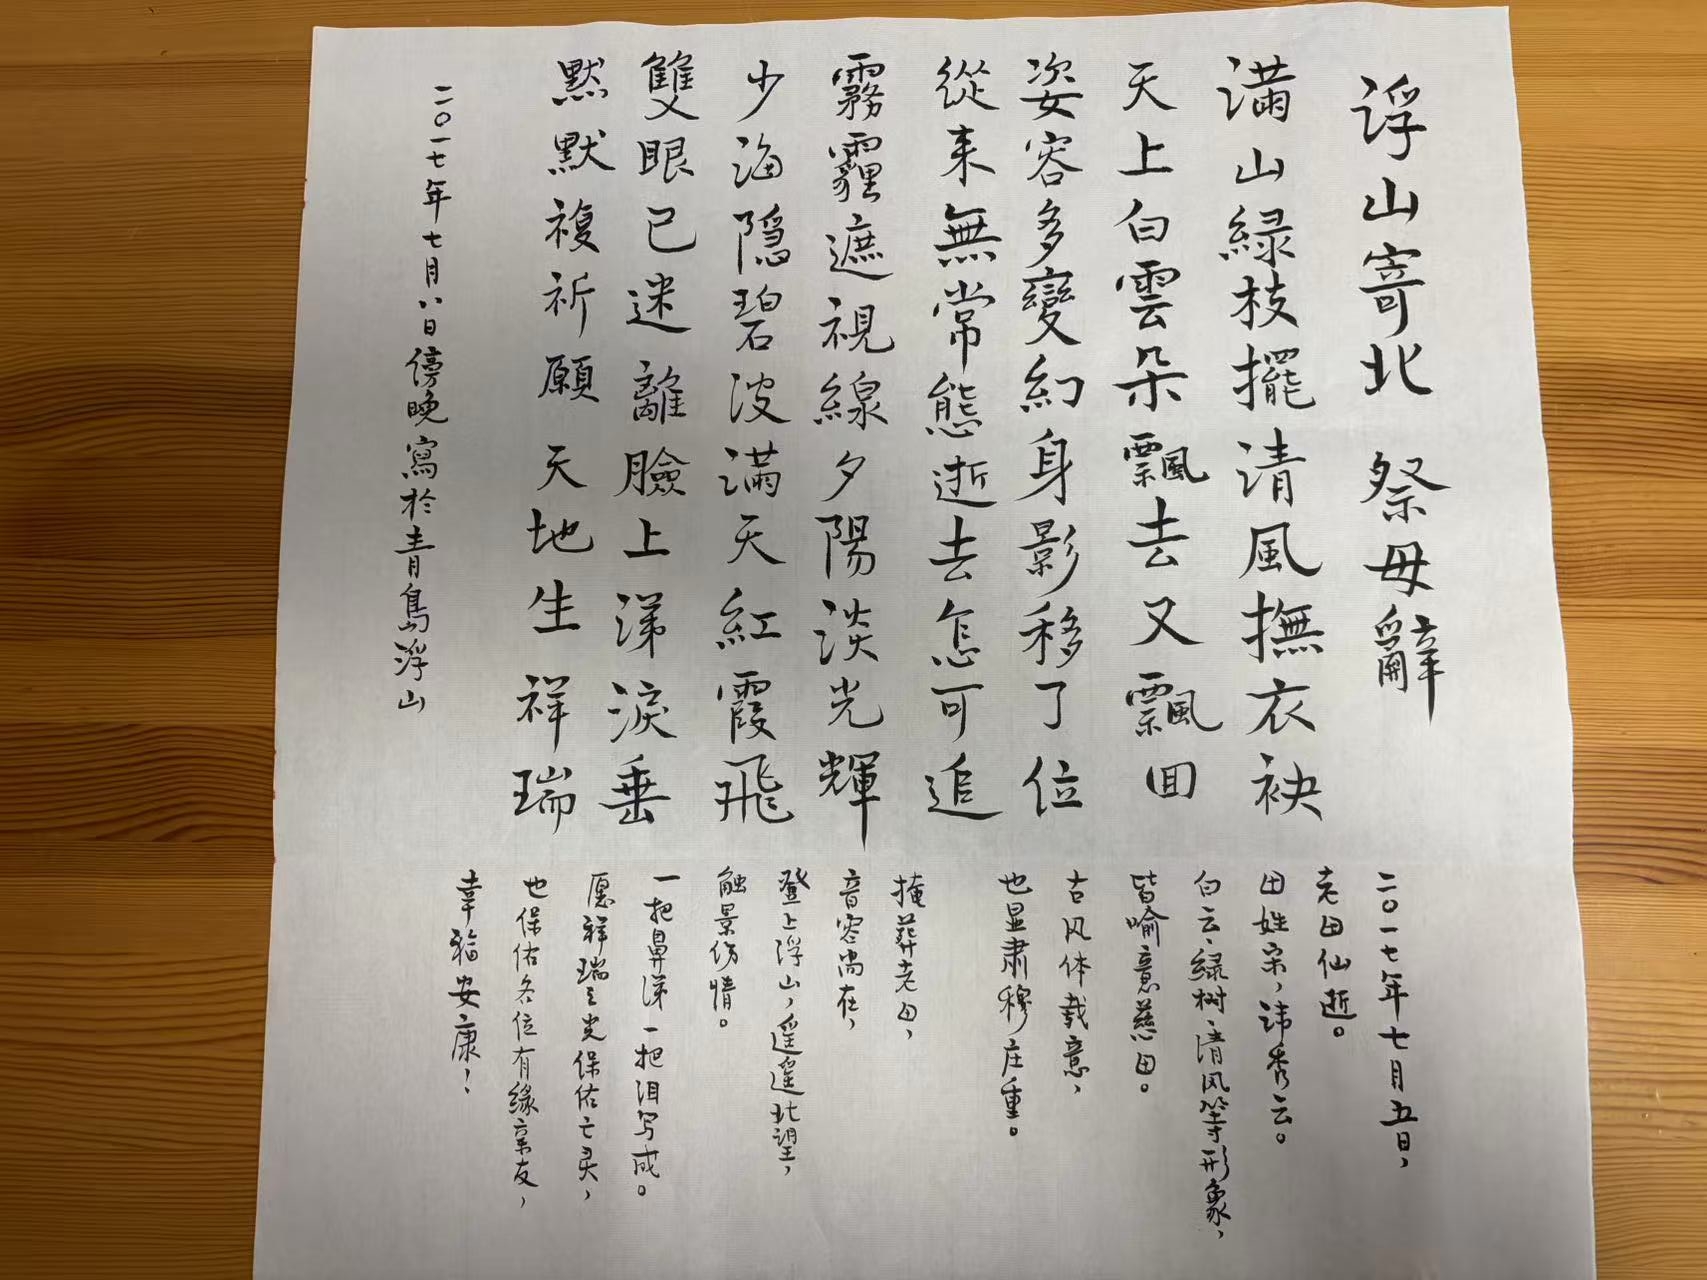 浮山寄北 祭母辭
滿山緑枝擺清風撫衣袂
天上白雲朵飄去又飄回
姿容多變幻身影移了位
從来無常態逝去怎可追
霧霾遮視線夕陽淡光輝
少海隠碧波滿天紅霞飛
雙眼已迷離臉上涕淚垂
黙默複祈願天地生祥瑞
二〇一七年七月八日傍晚寫於青島浮山
二〇一七年七月五日，
老田仙逝。
田姓宋，讳秀云。
白云、绿树、清风等形象，
皆喻意慈田。
古风体载意，
也显肃穆庄重。
掩葬老田，
音容尚在，
登上浮山，遥遥北望，
触景伤情。
一把鼻涕一把泪写成。
愿祥瑞之光保佑亡灵，
也保佑各位有缘亲友，
幸福安康！